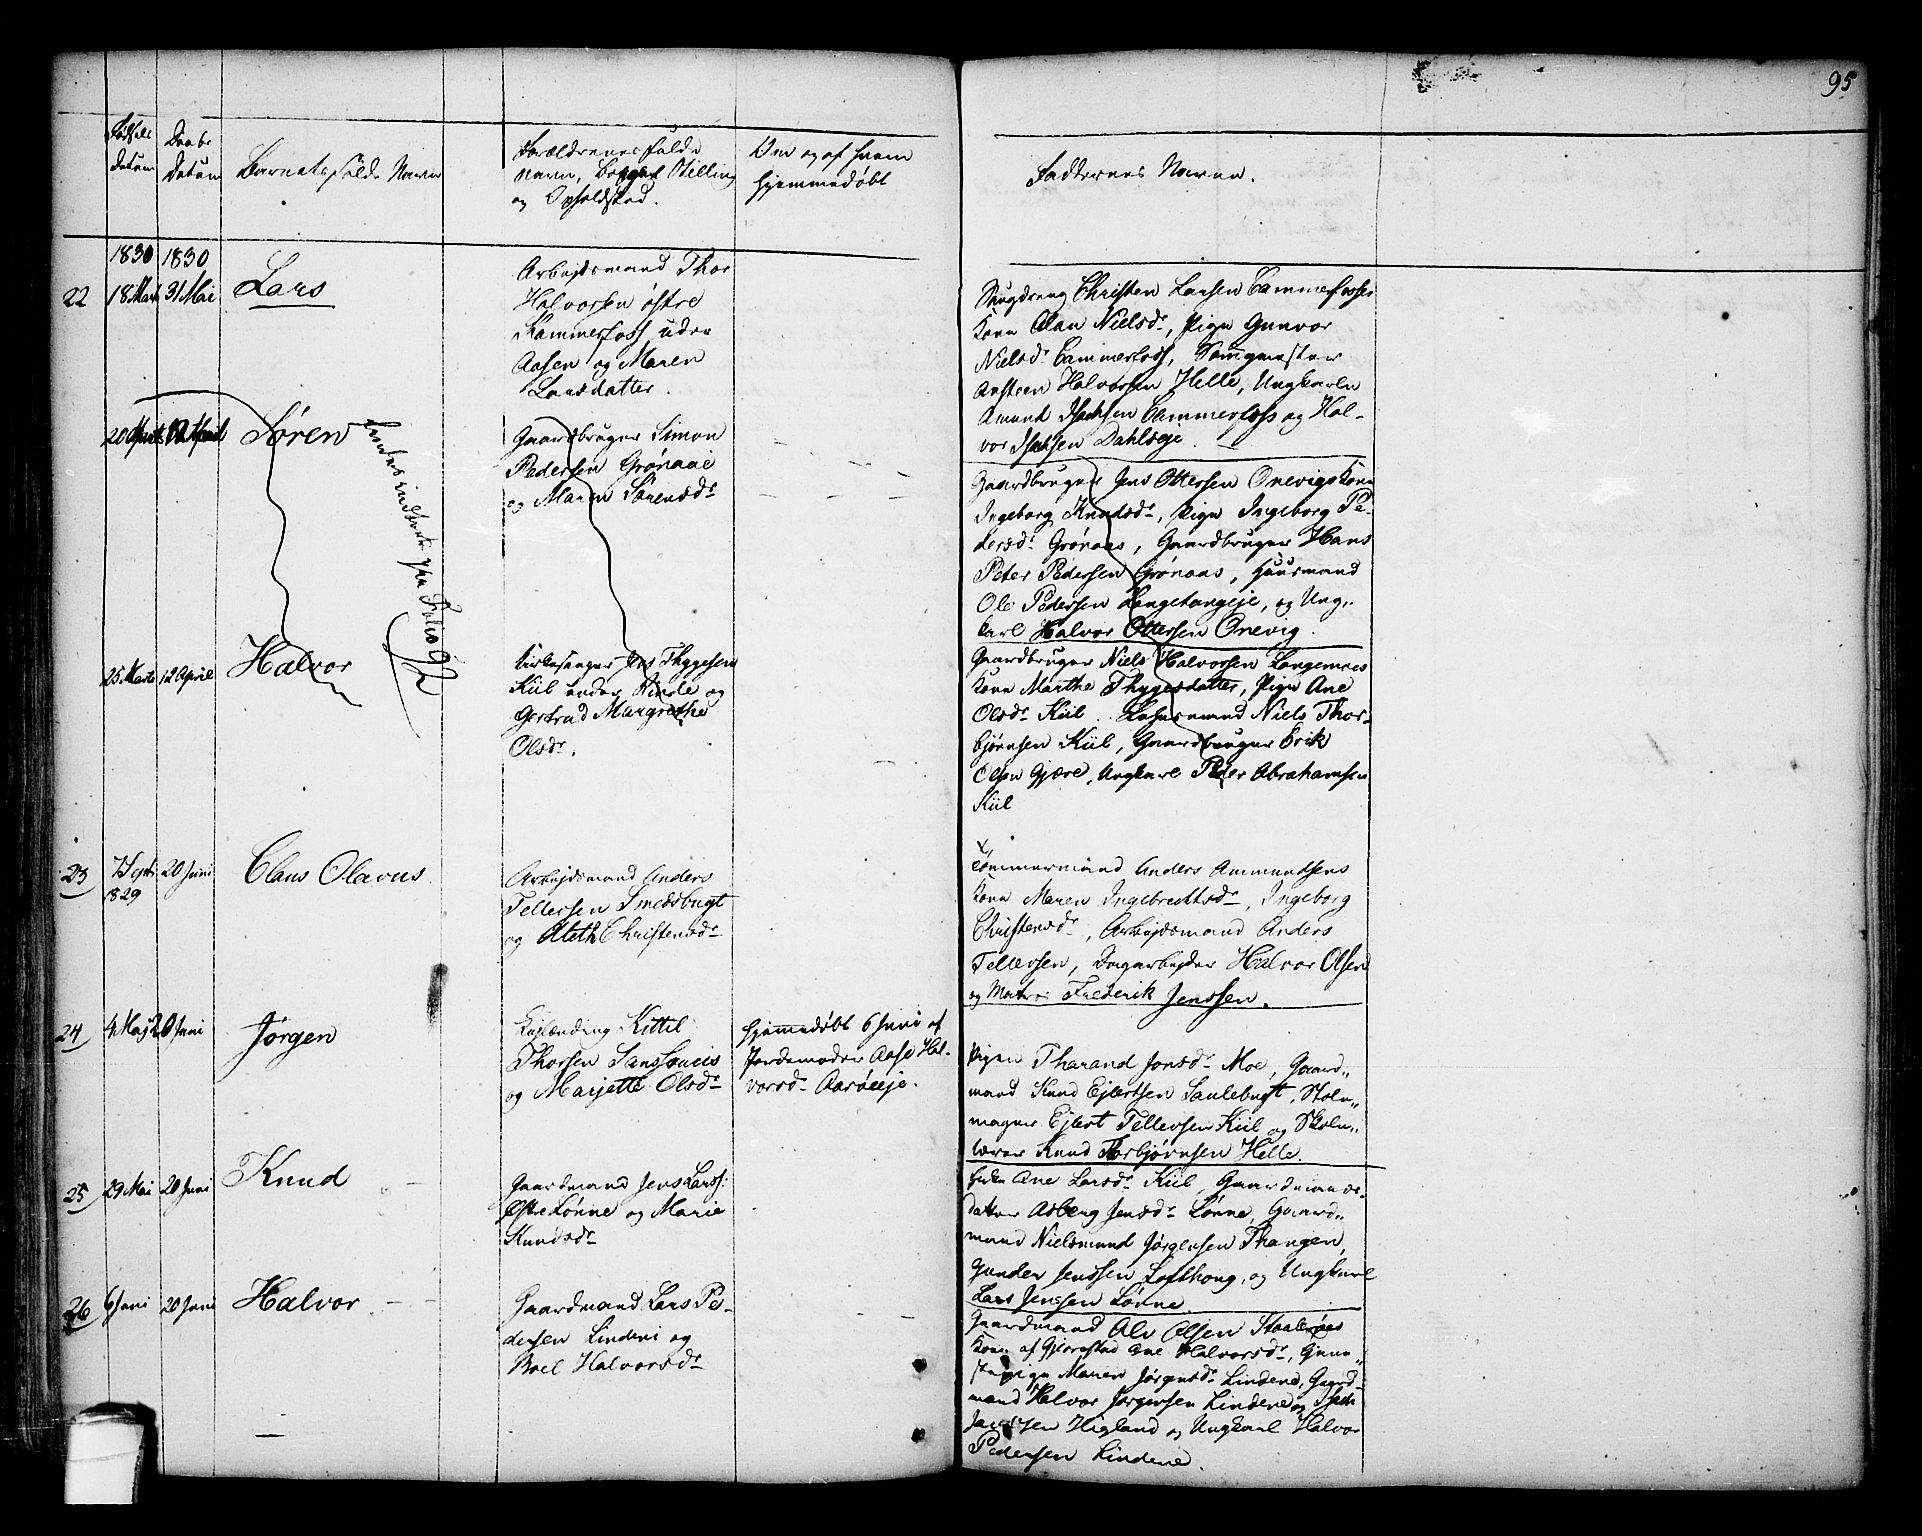 95
Fødsels Datum
Daabs Datum
Barnets fulde Navn
Forældrenes fulde
Navn, Stilling
og Opholdsted.
Om og af hvem
hjemmedøbt
Faddernes Navne.
1830 1830
22 18 Marts 31 Mai Lars
Arbejdsmand Thor
Halvorsen østre
Kammerfoss under
Aasen og Maren
Larsdatter.
Christen Larsen Cammerfosses
Kone Nielsdr, Pige Gunvor
Nielsdr Cammerfoss,
Halvorsen Helle, Ungkarle
Amund Isachsen Cammerfoss og Hal-
vor Isachsen Dahlseje.
20 12 April Søren
findes indført paa Folio 92
Gaardbruger Simon
Pedersen Grønaae
og Maren Sørensdr
Gaardbruger Jens Ottersen Onevigs Kone
Ingeborg Knudsdr, Pige Ingeborg Pe-
dersdr Grønaas, Gaardbruger Hans
Peter Pedersen Grønaas, Huusmand
Ole Pedersen Langetangeje, og Ung-
karl Halvor Ottersen Onevig.
25 Marts 12 April Halvor
Kirkesanger Jens Thygesen
Kiil under Rinde og
Gertrud Margrethe
Olsdr.
Gaardbruger Niels Halvorsen Langemyrs
Kone Marthe Thygesdatter, Pige Ane
Olsdr Kiil. Niels Thor-
bjørnsen Kiil, Gaardbruger Erik
Olsen Gjære, Ungkarl Peder Abrahamsen
Kiil
23 7 Sept 1829 20 Juni Claus Olavus
Arbejdsmand Anders
Tellefsen Smedsbugt
og Aleth Christensdr
Tømmermand Anders Ammundsens
Kone Maren Ingebrechtsdr, Ingeborg
Christensdr, Arbejdsmand Anders
Tellevsen, Dagarbejder Halvor Olsen
og Frederik Jenssen.
24 4 Maj 20 Juni Jørgen
Kittil
Thorsen Sanssoucis
og Marjette Olsdr
hjemmedøbt 6 Juni af
Jordemoder Aase Hal-
vorsdr Aarøeje.
Pigen Tharand Jonsdr Moe, Gaard-
mand Knud Ejlertsen Saulebugt, Stole-
mager Ejlert Tellevsen Kiil og Skole-
lærer Knud Thorbjørnsen Helle.
25 29 Mai 20 Juni Knud
Gaardmand Jens Larss:
Østre Lønne og Marie
Knudsdr
Ane Larsdr Kiil, Gaardmands-
datter Asberg Jensdr Lønne, Gaard-
mand Nielsmund Jørgensen Thangen,
Gunder Jenssen Lofthoug, og Ungkarl
Lars Jenssen Lønne.
26 6 Juni 20 Juni Halvor
Gaardmand Lars Pe-
dersen Lindeni og
Boel Halvorsdr
Gaardmand Alv Olsen Staalenæs
Kone af Gjerrestad Ane Halvorsdr,
Maren Jørgensdr Lindene, Gaard-
mand Halvor Jørgensen Lindene og
Higland og Ungkarl Halvor
Pedersen Lindene.